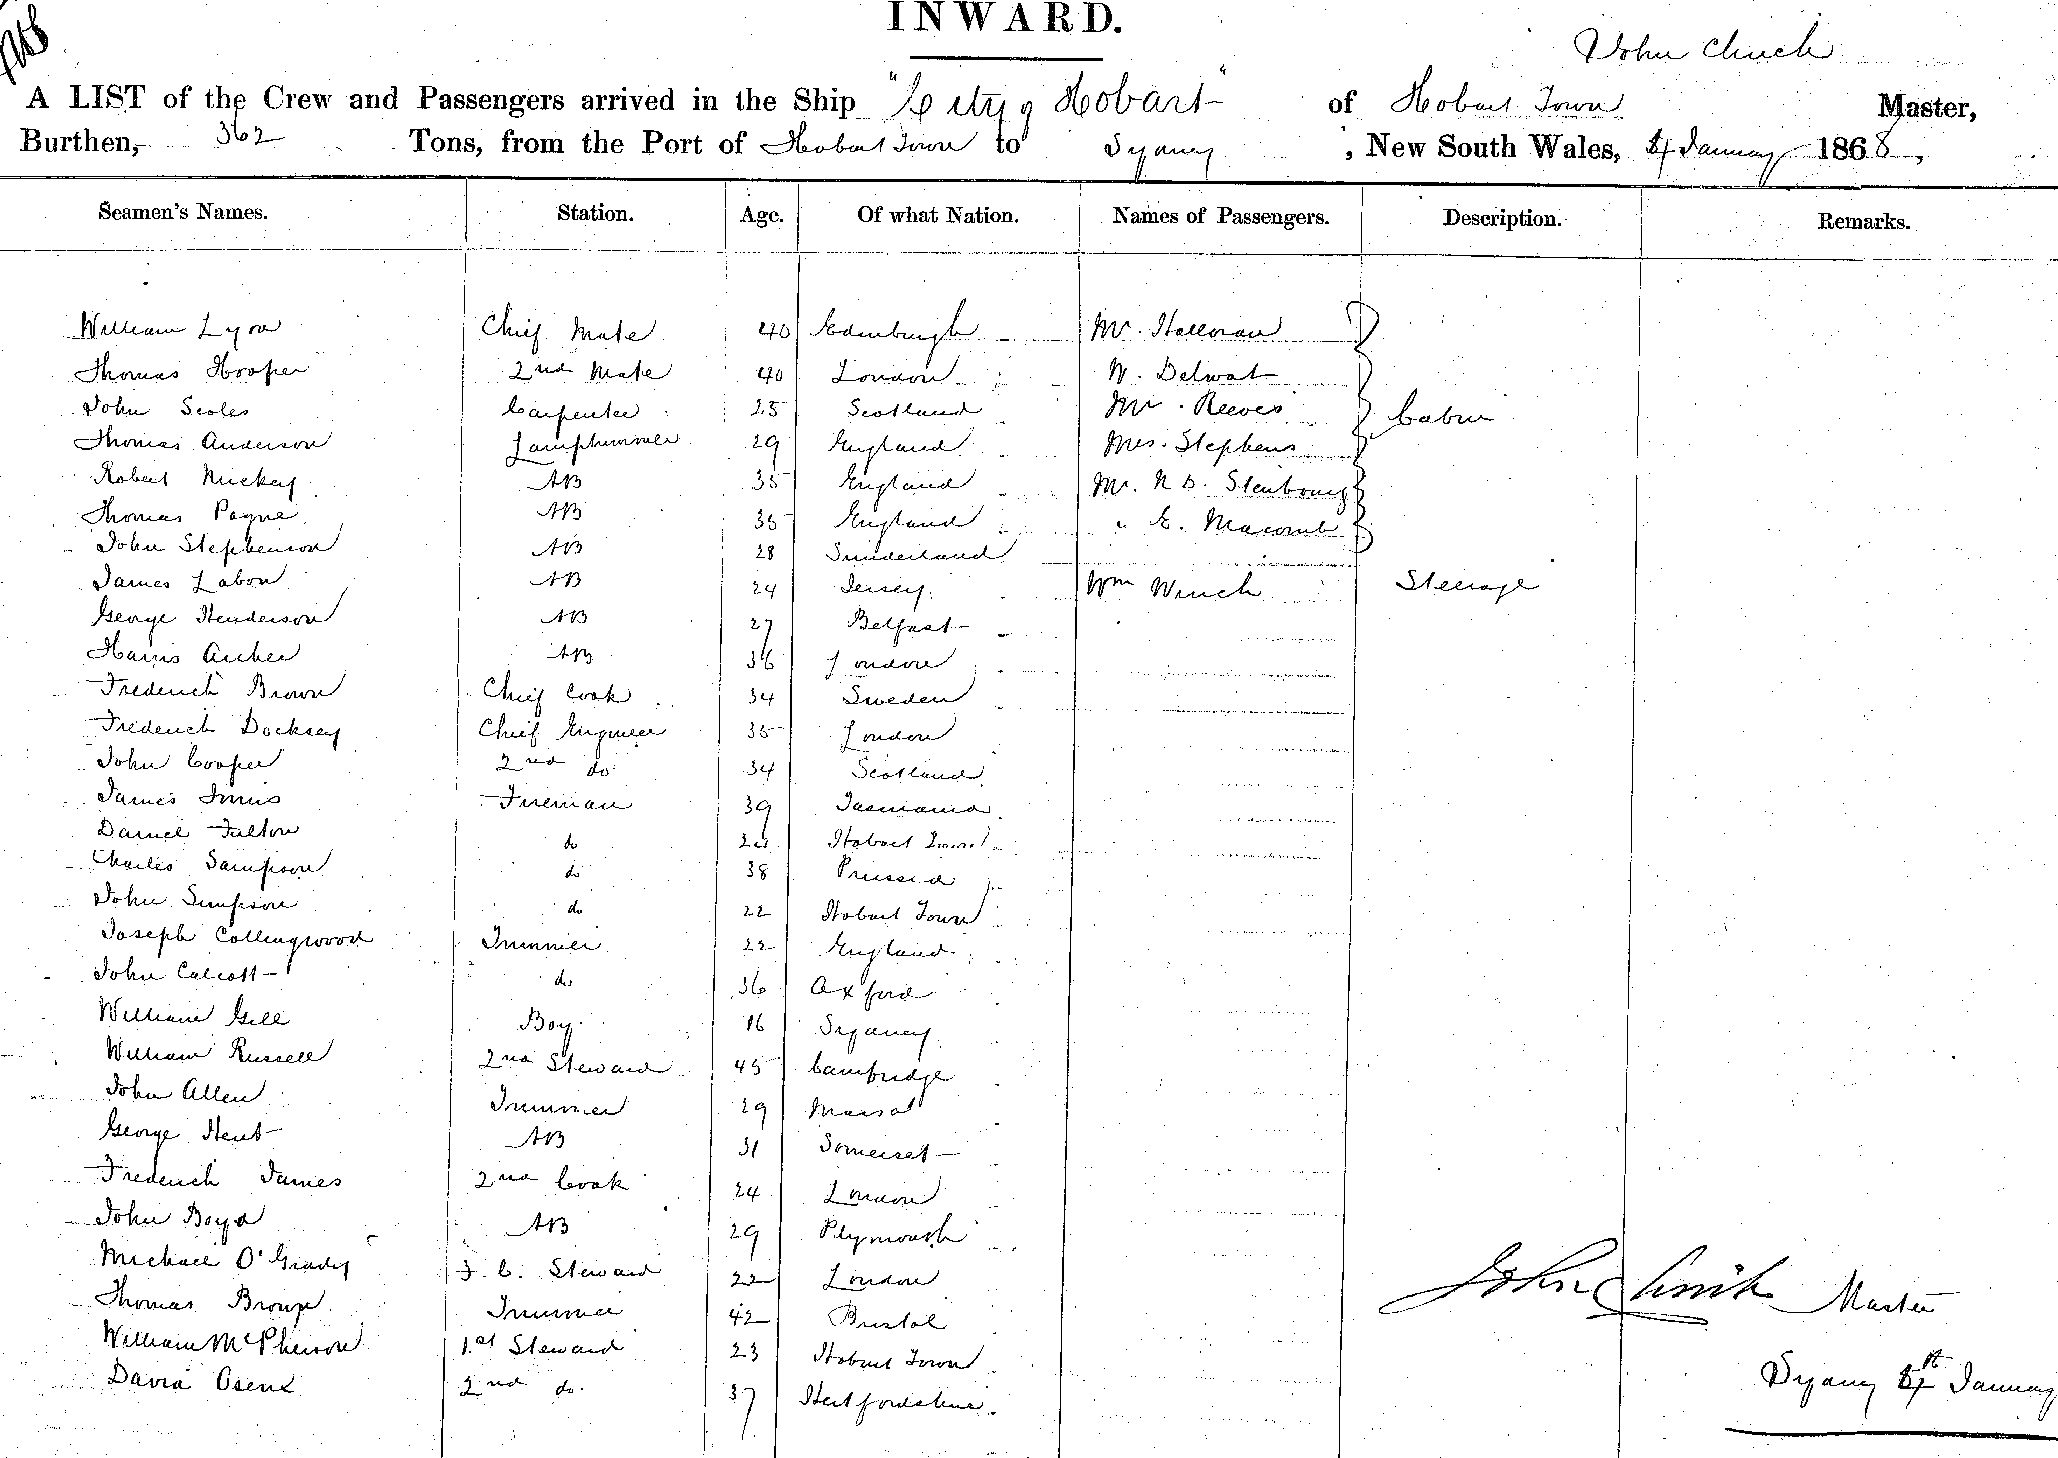 1768
INWARD.
John Clinch
A LIST of the Crew and Passengers arrived in the Ship "City of Hobart" of Hobart Town Master,
Burthen, 362 Tons, from the Port of Hobart Town to Sydney, New South Wales, January 1868,
Seamen's Names. Station. Age. Of what Nation. Names of Passengers. Description. Remarks.
William Lyon Chief Mate 40 Edinburgh Mr. Halloran
Thomas Hooper 2nd Mate 40 London
John Scoles Carpenter 25 Scotland Mr. Reeves Cabin
Thomas Anderson Lamptrimmer 29 England Mrs. Stephens
Robert 35 England Mr.
Thomas Payne AB 35 England " E. Macomb
John Stephenson AB 28 Sunderland
James Labon AB 24 Jersey Wm Winch Steerage
George Henderson AB 27 Belfast
Harris Archer AB 36 London
Frederick Brown Chief Cook 34 Sweden
Frederick Docksey Chief Engineer 35 London
John Cooper 2nd do 34 Scotland
James Innis Fireman 39 Tasmania
Daniel Fulton do Hobart Town
Charles Sampson do 38 Prussia
John Simpson do 22 Hobart Town
Joseph Collingwood Trimmer 22 England
John Calcott do 36 Oxford
William Gill Boy 16 Sydney
William Russell 2nd Steward 45 Cambridge
John Allen Trimmer 29
George Hent AB 31 Somerset
Frederick James 2nd Cook 24 London
John Boyd AB 29 Plymouth
Michael O'Grady F. C. Steward 22 London
Thomas Brown Trimmer 42 Bristol
William McPherson 1st Steward 23 Hobart Town
David 2nd do. 37 Hertfordshire
John Clinch Master
Sydney January